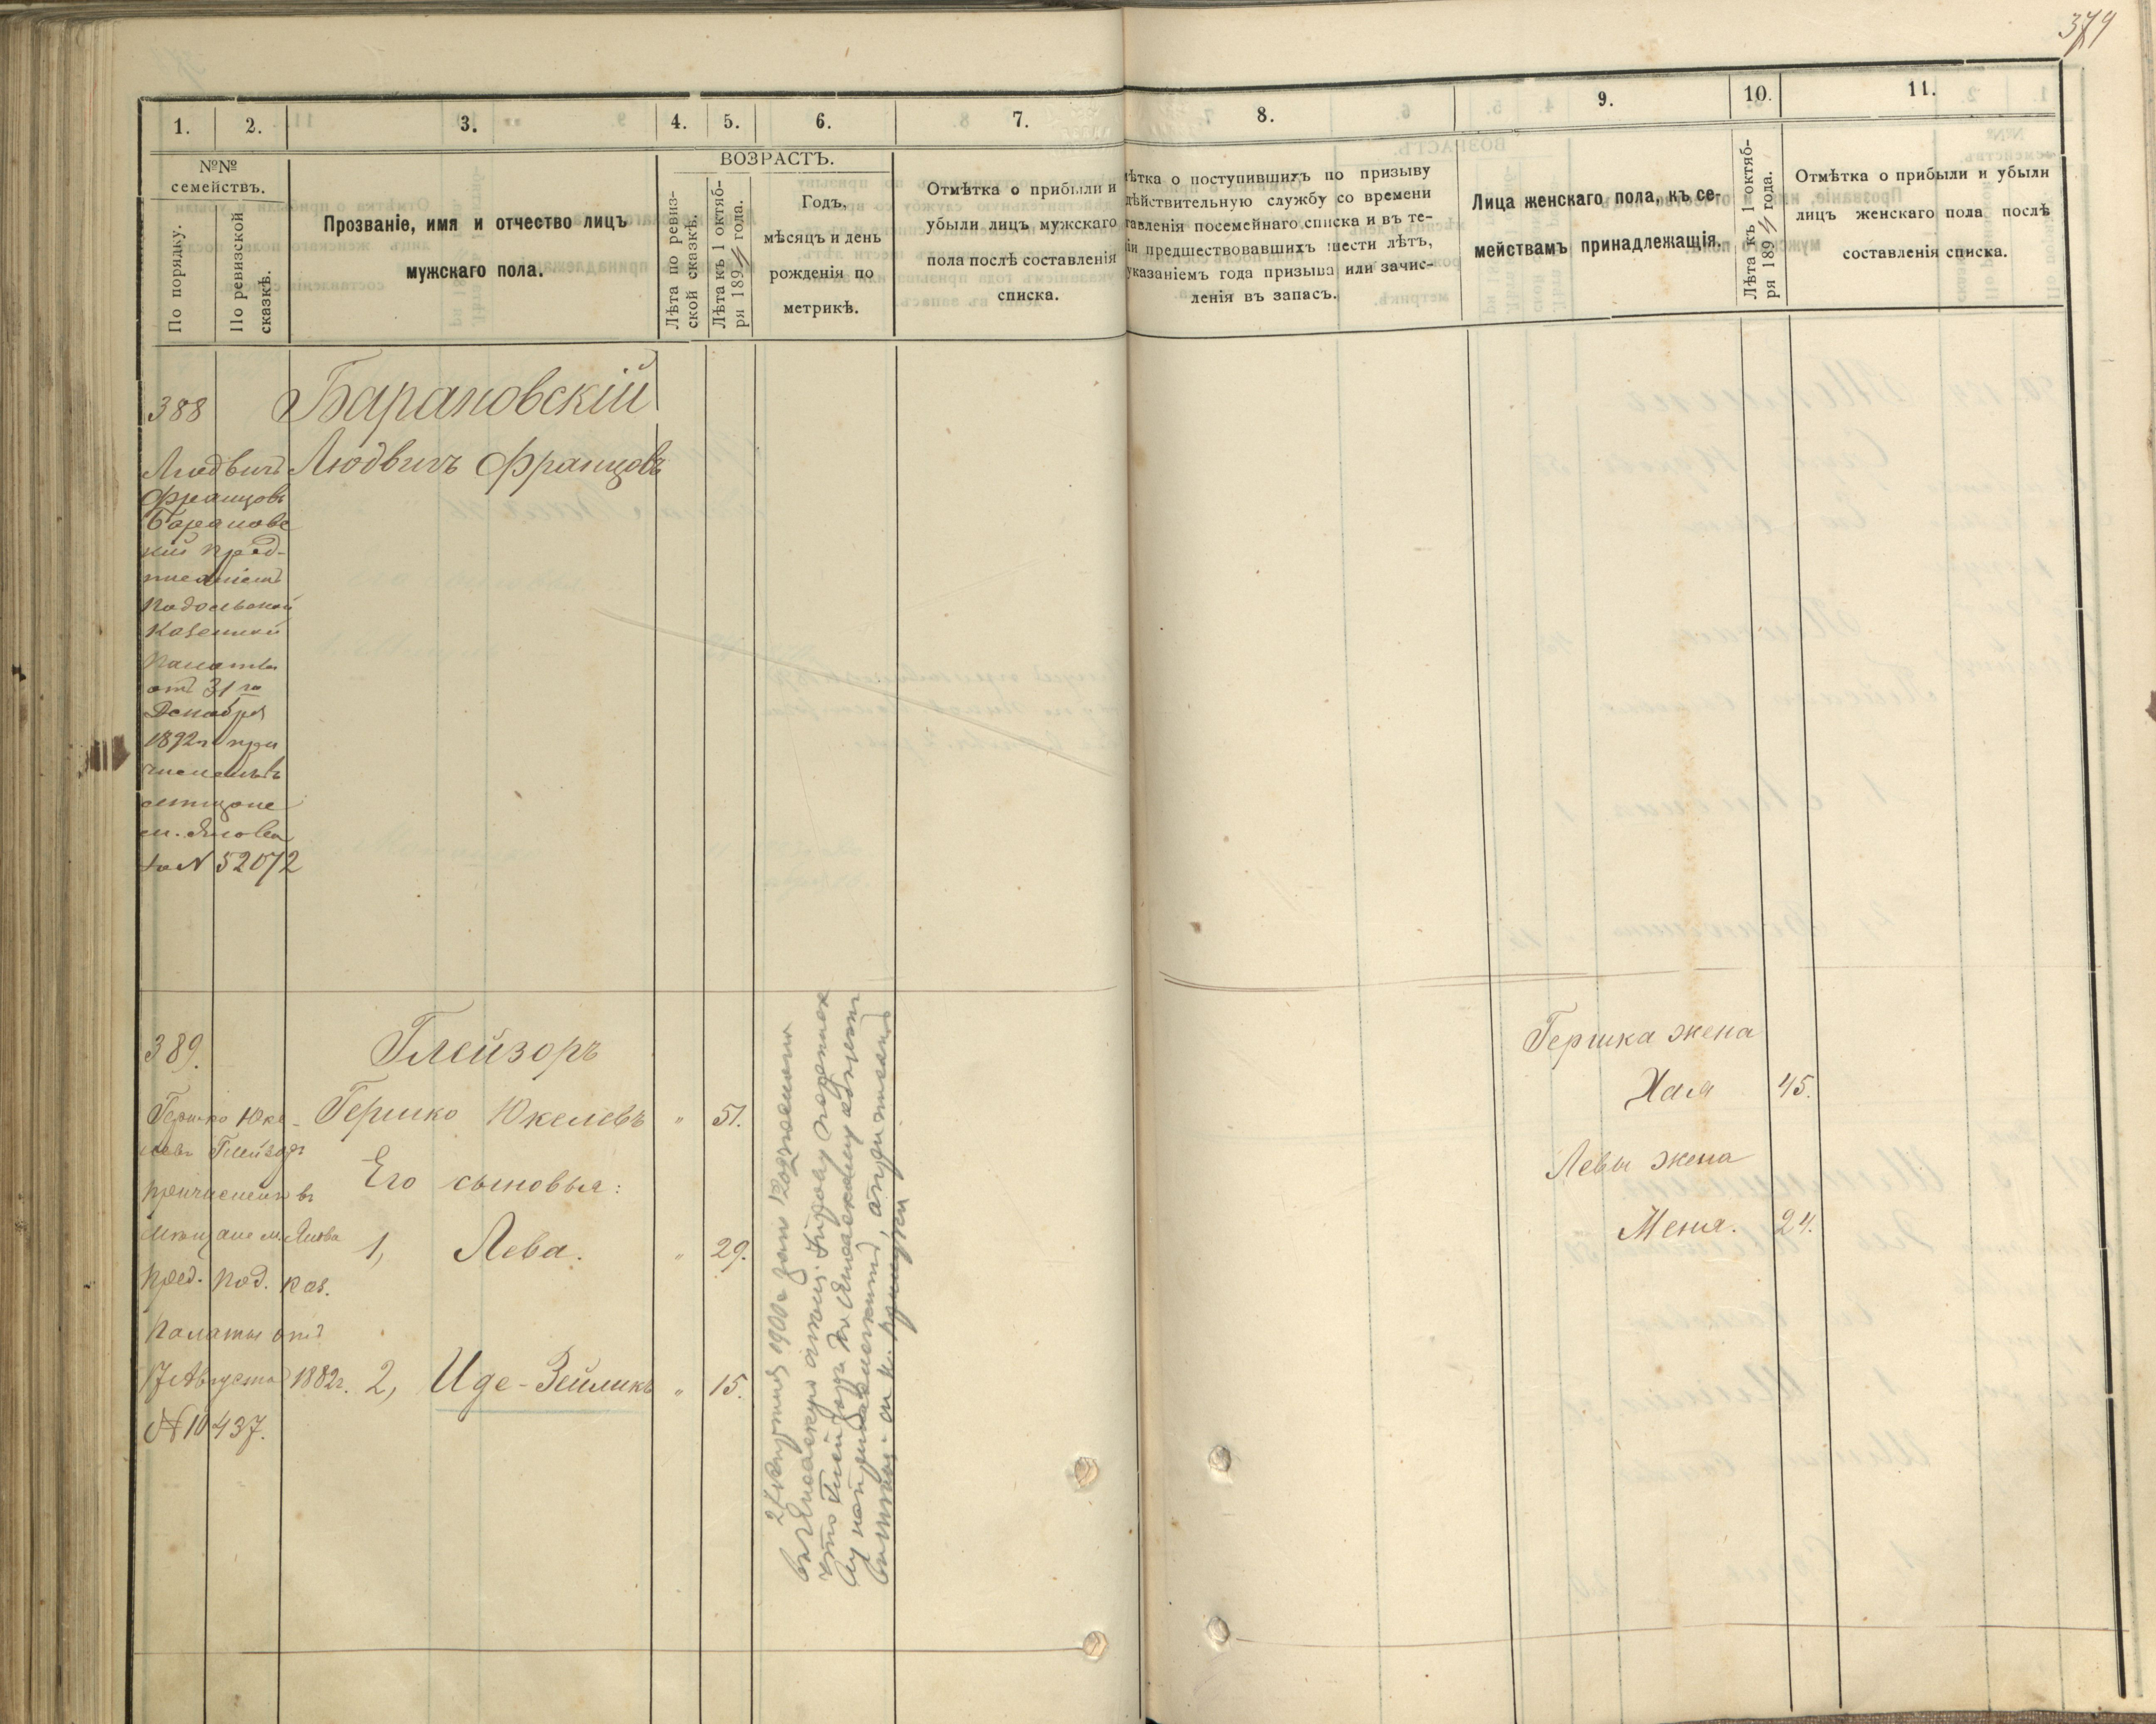 379
1.
2.
3.
4.
5.
6.
7.
8.
9.
10.
11.
№№
семействъ.
По порядку.
По ревизской
сказкѣ.
Прозваніе, имя и отчество лицъ
мужскаго пола.
ВОЗРАСТЪ.
Лѣта по ревиз-
ской сказкѣ.
Лѣта къ 1 октяб-
ря 189 года.
Годъ,
мѣсяцъ и день
рожденія по
метрикѣ.
Отмѣтка о прибыли и
убыли лицъ мужскаго
пола послѣ составленія
списка.
ѣтка о поступившихъ по призыву
дѣйствительную службу со времени
тавленія посемейнаго списка и въ те-
іи предшествовавшихъ шести лѣтъ,
указаніемъ года призыва или зачис-
ленія въ запасъ.
Лица женскаго пола, къ се-
мействамъ принадлежащія.
Лѣта къ 1 октяб-
ря 189 года.
Отмѣтка о прибыли и убыли
лицъ женскаго пола послѣ
составленія списка.
388
Барановскій
Людвигъ Францовъ
Людвигъ
Францовъ
Барановс
кій пред-
писаніемъ
Подольской
Казенной
Палаты
отъ 31 го
Декабря
1892 г при
численъ въ
мѣщане
м. Янова
за № 52072
389.
Глейзоръ
Гершко Юкелевъ " 51.
Его сыновья:
1, Лева. " 29.
2, Иде-Зейликъ " 15.
Гершко Юке-
левъ Глейзоръ
причисленъ въ
мѣщане м. Янова
пред. Под. Каз.
Палаты отъ
17 Августа 1882 г.
№ 10437.
Гершка жена
Хая 45.
Левы жена
Меня. 24.